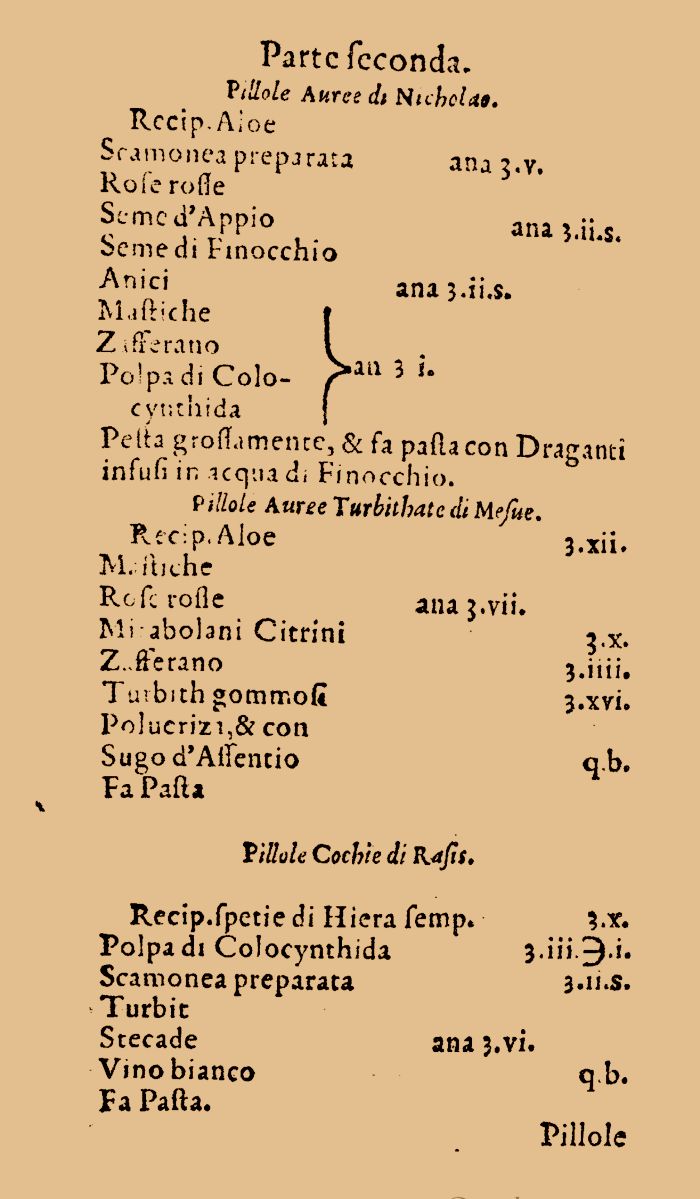 Parte ſeconda.
Pillole Auree di Nicholao.
Recip. Aloe
Scamonea preparata ana ʒ.v.
Roſe roſſe
Seme d'Appio ana ʒ.ii.s.
Seme di Finocchio
Anici ana ʒ.ii.s.
Maſtiche
Zafferano
Polpa di Colo- an ʒ i.
cynthida
Peſta groſſamente, & fa paſta con Draganti
infuſi in acqua di Finocchio.
Pillole Auree Turbithate di Meſue.
Recip. Aloe ʒ.xii.
Maſtiche
Roſe roſſe ana ʒ.vii.
Mirabolani Citrini ʒ.x.
Zafferano ʒ.iiii.
Turbith gommoſi ʒ.xvi.
Polueriza,& con
Sugo d'Aſſentio q.b.
Fa Paſta
Pillole Cochie di Raſis.
Recip.ſpetie di Hiera ſemp. ʒ.x.
Polpa di Colocynthida ʒ.iii.℈.i.
Scamonea preparata ʒ.ii.s.
Turbit
Stecade ana ʒ.vi.
Vino bianco q.b.
Fa Paſta.
Pillole